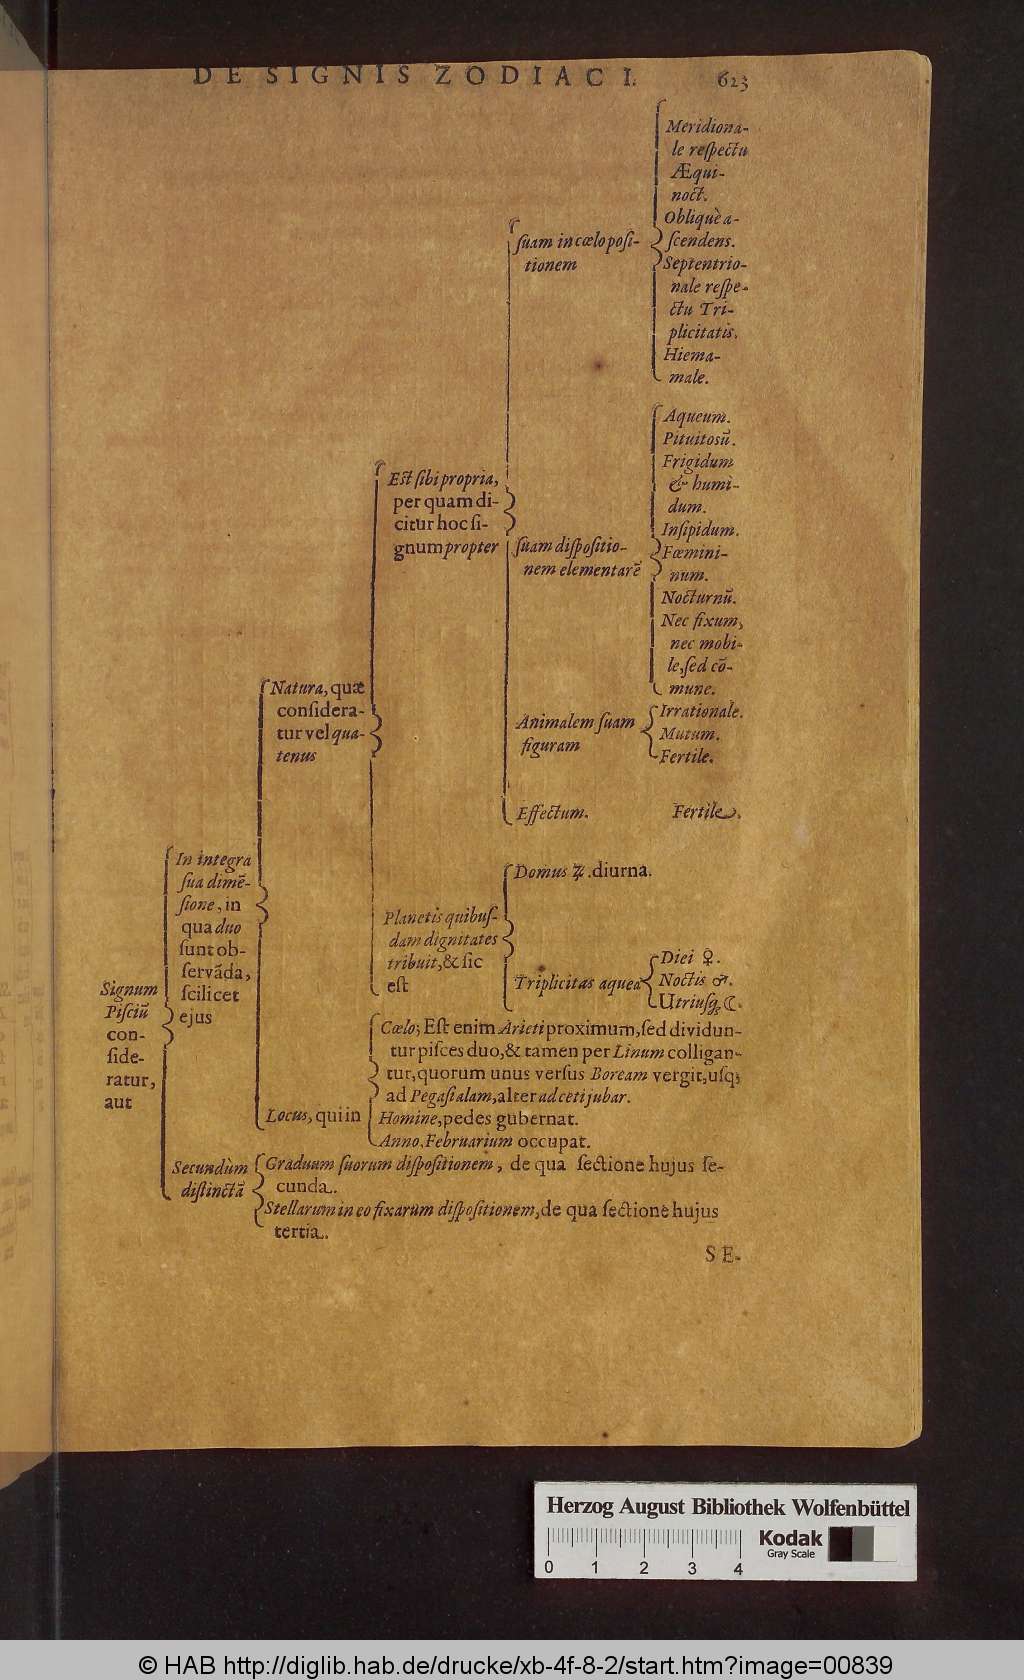 DE SIGNIS ZODIACI. 623
Signum
Pisciũ
con-
side-
ratur,
aut
In integra
sua dimẽ-
sione, in
qua duo
sunt ob-
servãda,
scilicet
ejus
Natura, quæ
considera-
tur vel qua-
tenus
Est sibi propria,
per quam di-
citur hoc si-
gnum propter
suam in cœlo posi-
tionem
Meridiona-
le respectu
Æqui-
noct.
Obliquè a-
scendens.
Septentrio-
nale respe-
ctu Tri-
plicitatis.
Hiema-
male.
suam dispositio-
nem elementarẽ
Aqueum.
Pituitosũ.
Frigidum
& humi-
dum.
Insipidum.
Fœmini-
num.
Nocturnũ.
Nec fixum,
nec mobi-
le, sed cõ-
mune.
Animalem suam
figuram
Irrationale.
Mutum.
Fertile.
Effectum. Fertile.
Planetis quibus-
dam dignitates
tribuit, & sic
est
Domus ♃. diurna.
Triplicitas aquea
Diei ♀.
Noctis ♂.
Utriusq; ☾.
Locus, qui in
Cœlo; Est enim Arieti proximum, sed dividun-
tur pisces duo, & tamen per Linum colligan-
tur, quorum unus versus Boream vergit, usq;
ad Pegasi alam, alter ad ceti jubar.
Homine, pedes gubernat.
Anno, Februarium occupat.
Secundùm
distinctã
Graduum suorum dispositionem, de qua sectione hujus se-
cunda.
Stellarum in eo fixarum dispositionem, de qua sectione hujus
tertia.
SE-
Herzog August Bibliothek Wolfenbüttel
Kodak
Gray Scale
0 1 2 3 4
© HAB http://diglib.hab.de/drucke/xb-4f-8-2/start.htm?image=00839